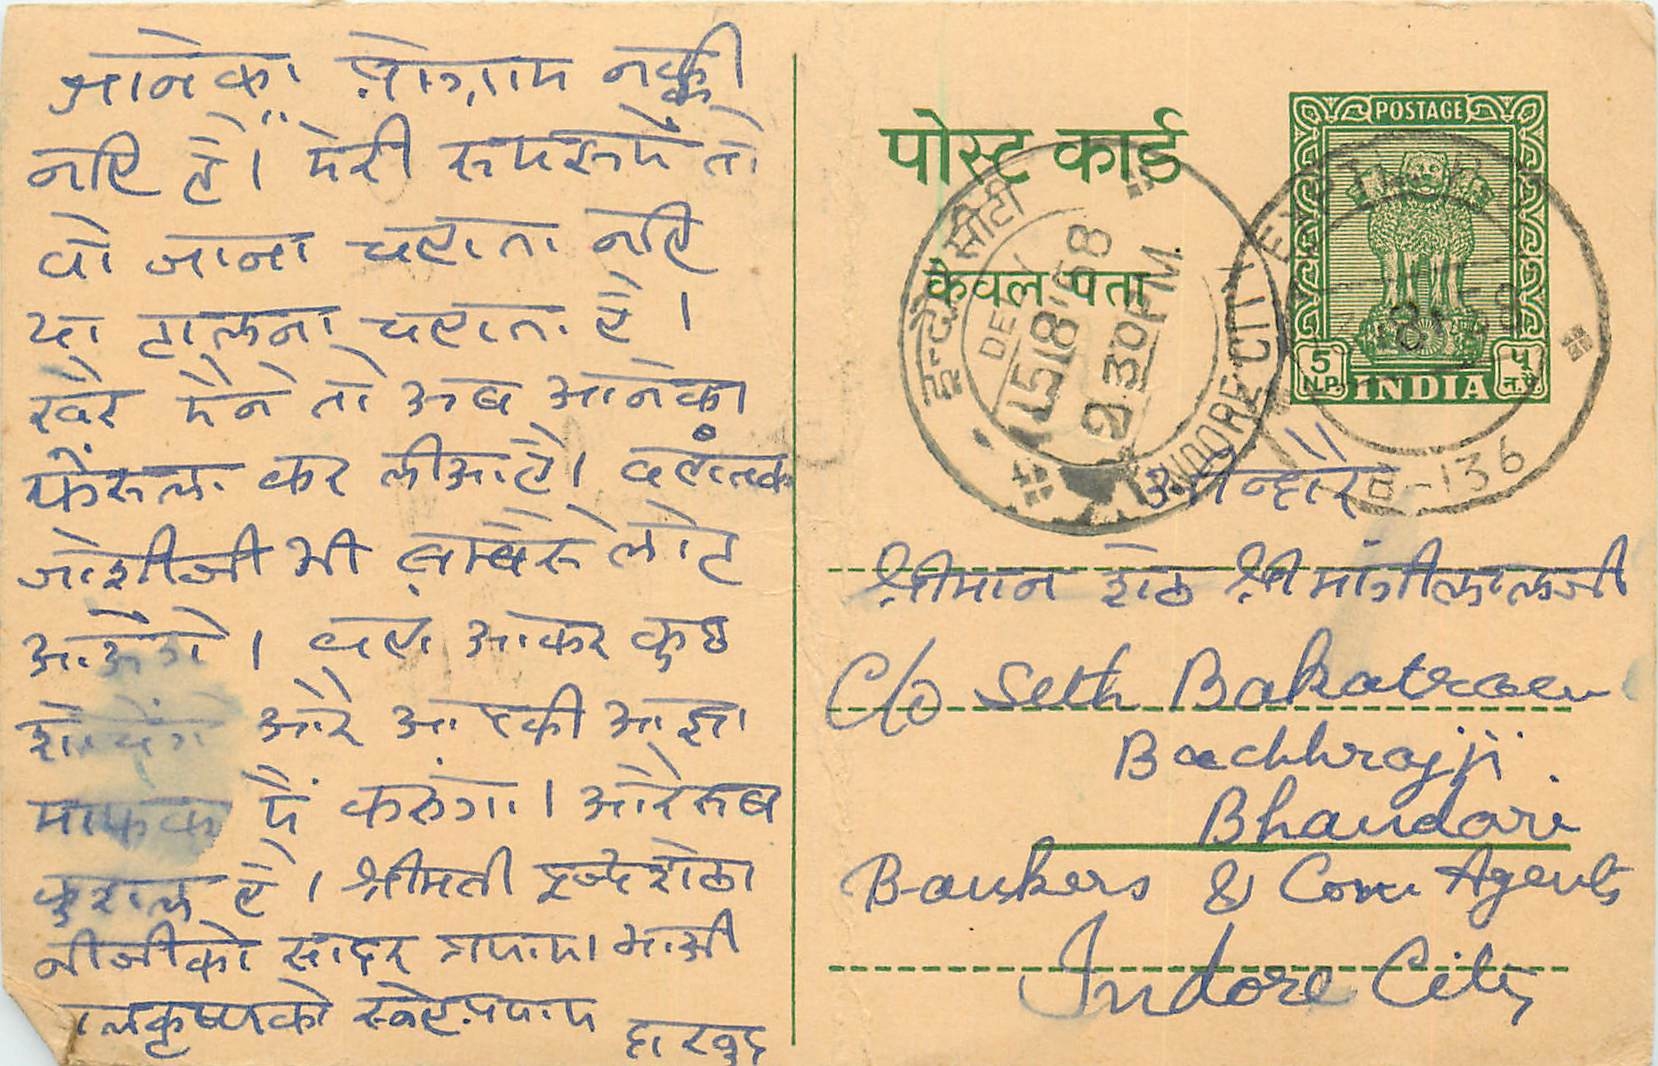 आनेका प्रोग्राम नक्की
नहि है। मेरी समझमें तो
वो जाना चहाता नहि
या टालना चहाता है।
खैर मैने तो अब आनेका
फैंसला कर लीआ है। वहांतक
जोशीजी भी बाम्बेसे लोट
आऐंगे। वहा आकर कुछ
शोचेंगे और आपकी आज्ञा
माफक मैं करुंगा। और सब
कुशल है। श्रीमती इन्द्रशेठा
नीजीको सादर प्रणाम। भाओ
लकृष्णको स्नेहप्रणाम
दा खुद
पोस्ट कार्ड
केवल पता
POSTAGE
5 N.P.
INDIA
५ न.पै.
इन्दौर सीटी
INDORE CITY
DELY
15 8 58
2.30PM.
B-136
इन्दौर
श्रीमान शेठ श्री मांगीलालजी
C/o Seth Bakatraam
Bachhrajji
Bhandari
Bankers & Com Agents
Indore City